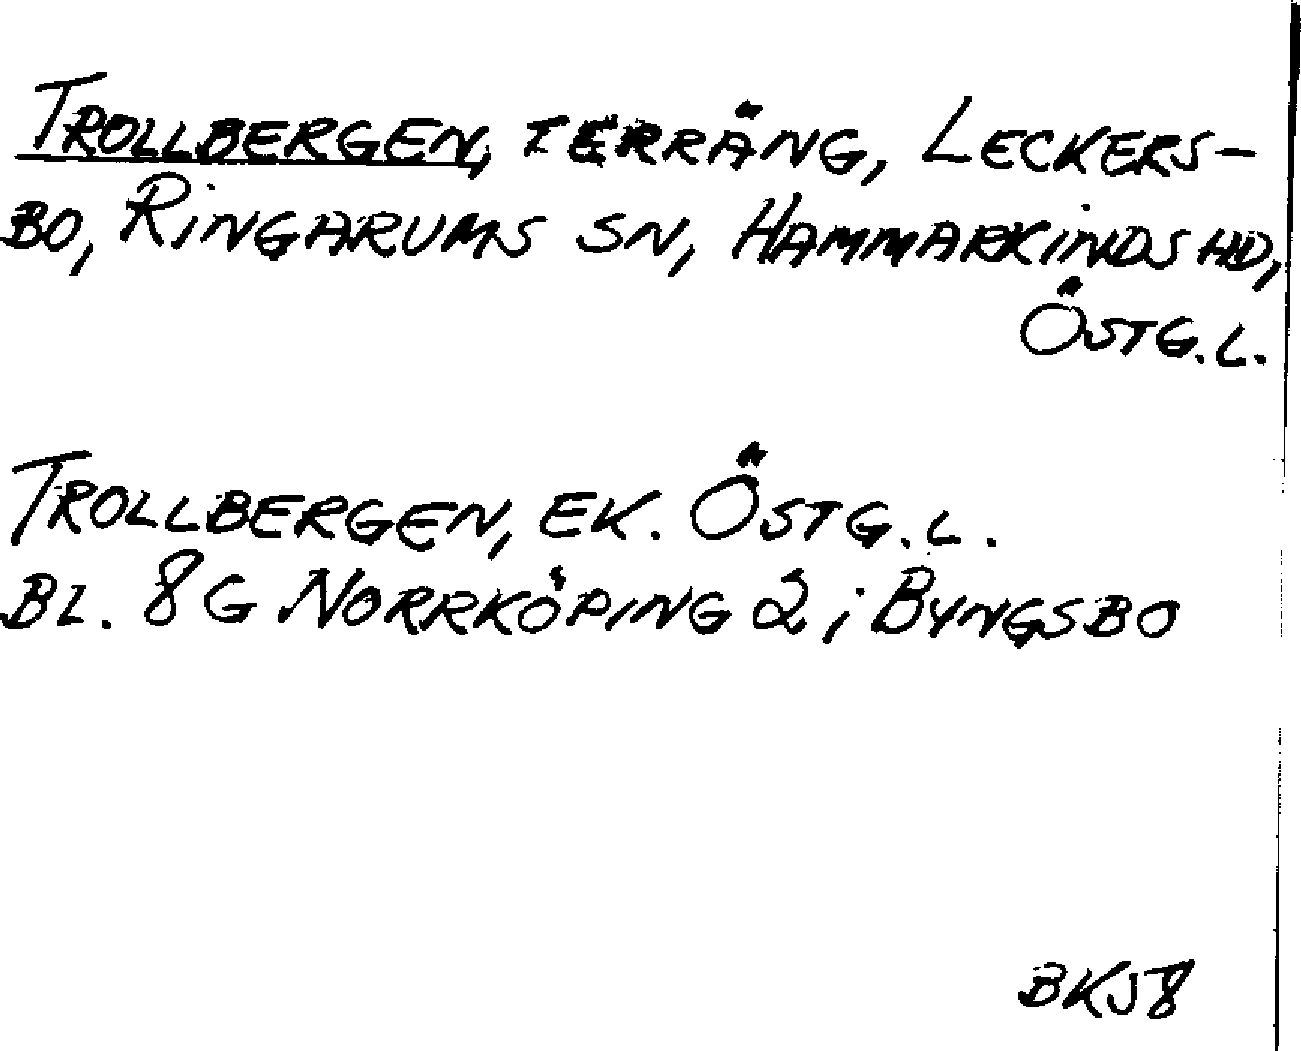 TROLLBERGEN, TERRÄNG, LECKERS-
BO, RINGARUMS SN, HAMMARKINDS HD,
ÖSTG.L.
TROLLBERGEN, EK. ÖSTG.L.
BL. 8G NORRKÖPING 2; BYNGSBO
BK58